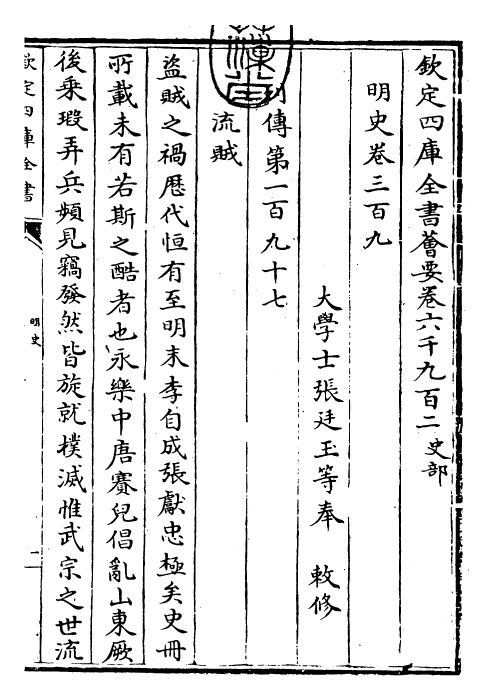 欽定四庫全書薈要卷六千九百二史部
明史卷三百九
大學士張廷玉等奉敕修
列傳第一百九十七
流賊
盜賊之禍歷代恒有至明末李自成張獻忠極矣史冊
所載未有若斯之酷者也永樂中唐賽兒倡亂山東厥
後乗瑕弄兵頻見竊發然皆旋就撲滅惟武宗之世流
欽定四庫全書
明史